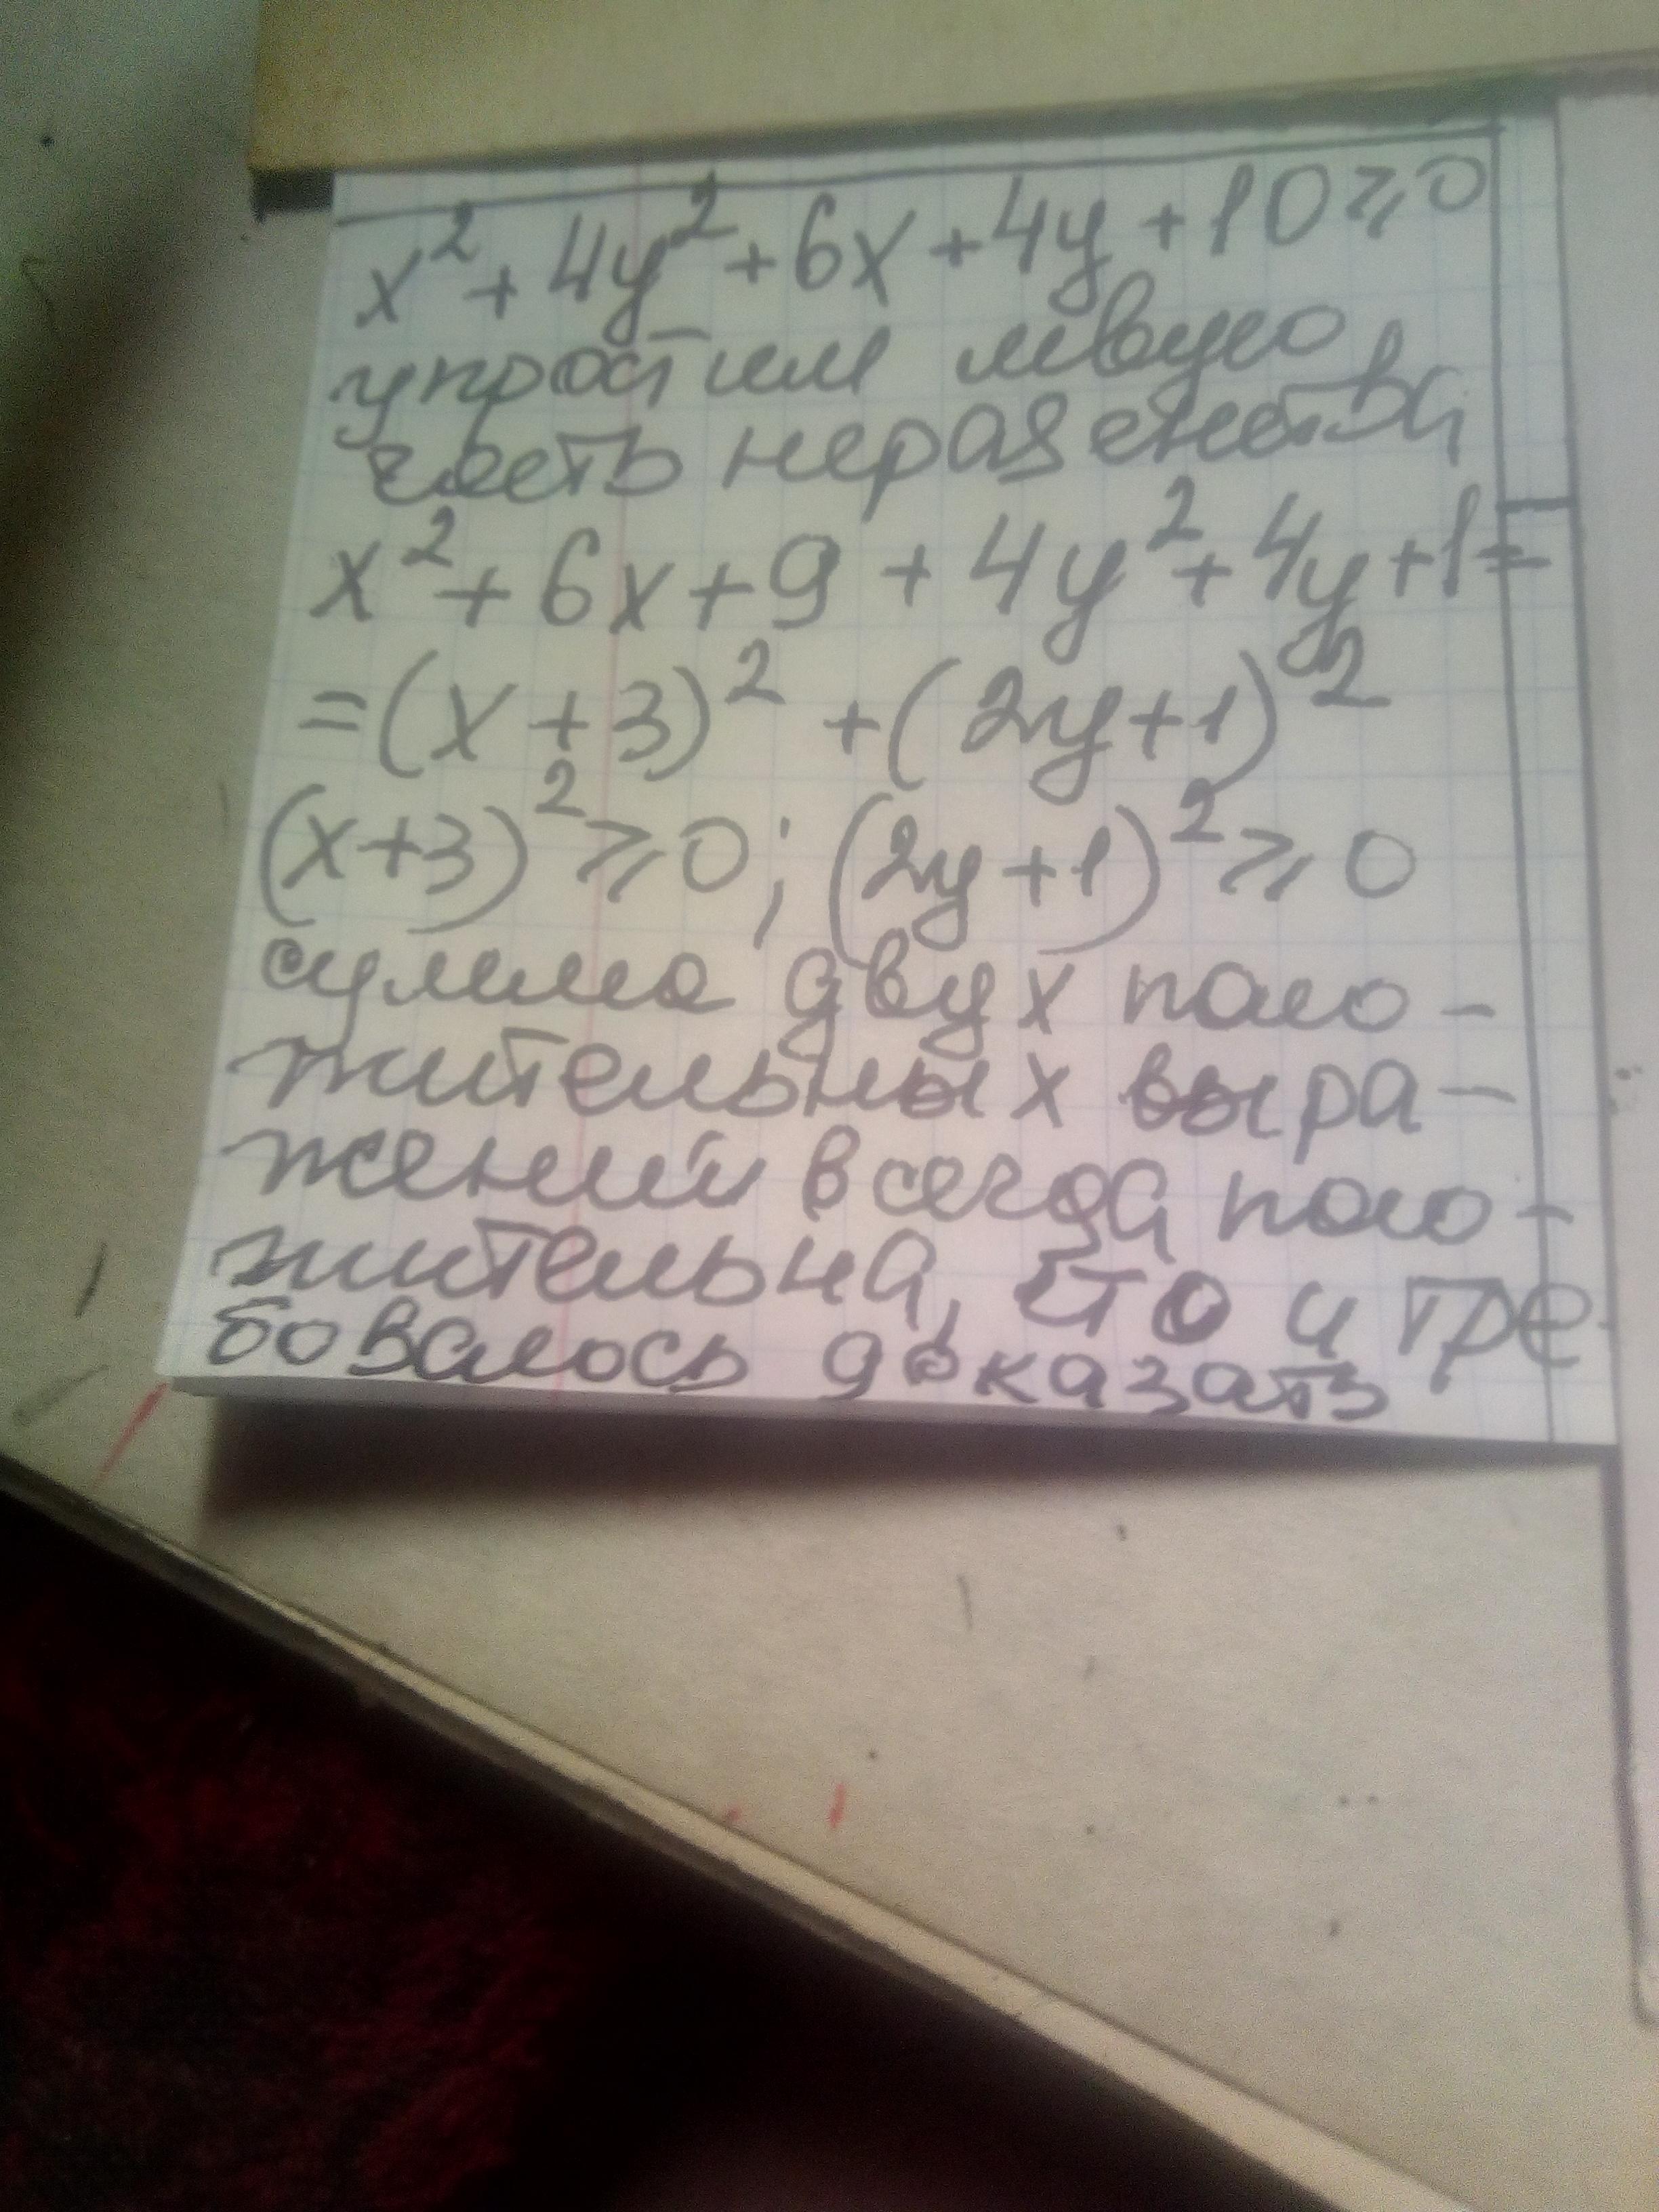 x² + 4y² + 6x + 4y + 10 ⩾ 0
упростим левую
часть неравенства
x² + 6x + 9 + 4y² + 4y + 1 =
= (x + 3)² + (2y + 1)²
(x + 3)² ⩾ 0; (2y + 1)² ⩾ 0
сумма двух поло-
жительных выра-
жений всегда поло-
жительна, что и тре
бовалось доказать